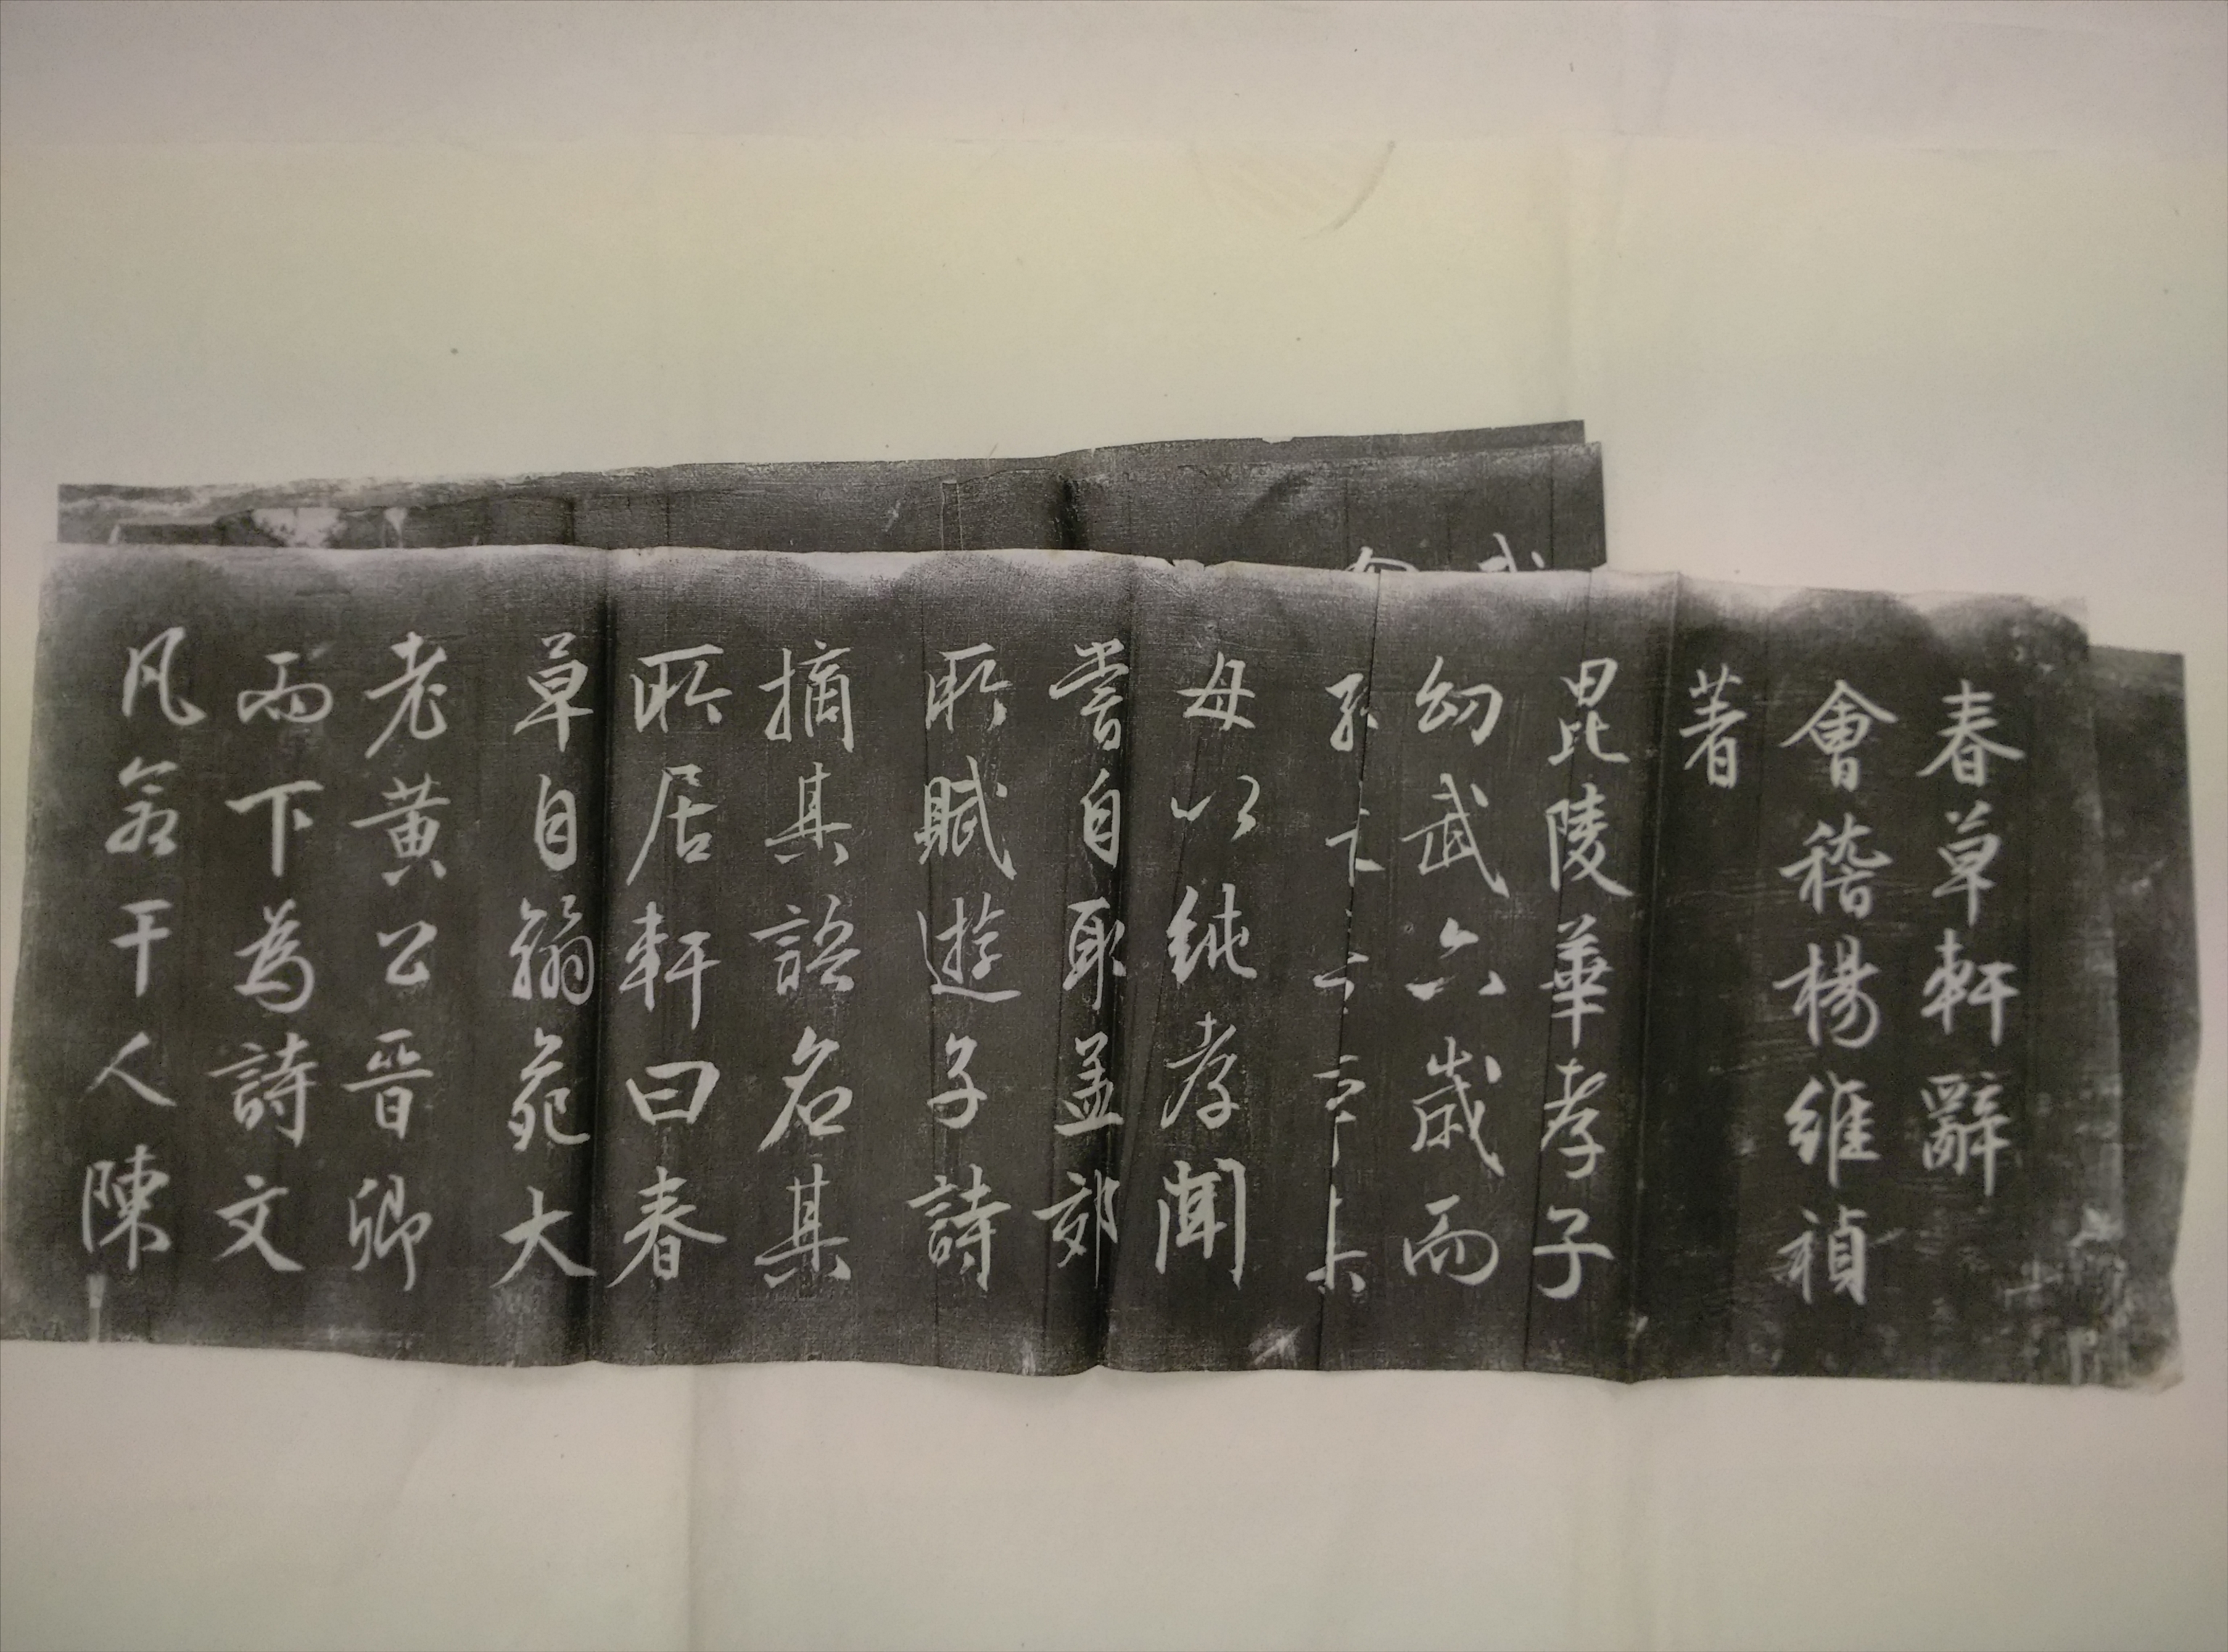 春草軒辭
會稽楊維禎
著
昆陵華孝子
幼武六歲而
母以純孝聞
嘗自取孟郊
所賦遊子詩
摘其語名其
所居軒曰春
草自翰苑大
老黃公晉卿
而下為詩文
凡若干人陳